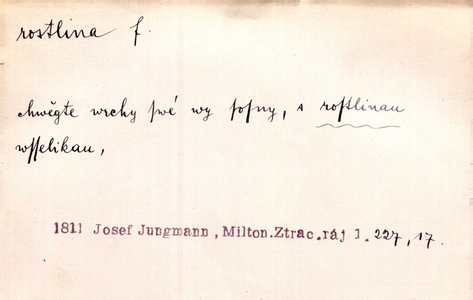 rostlina f.
chwěgte wrchy swé wy sosny, s rostlinau
wsselikau,
1811 Josef Jungmann, Milton.Ztrac.ráj 1. 227, 17.